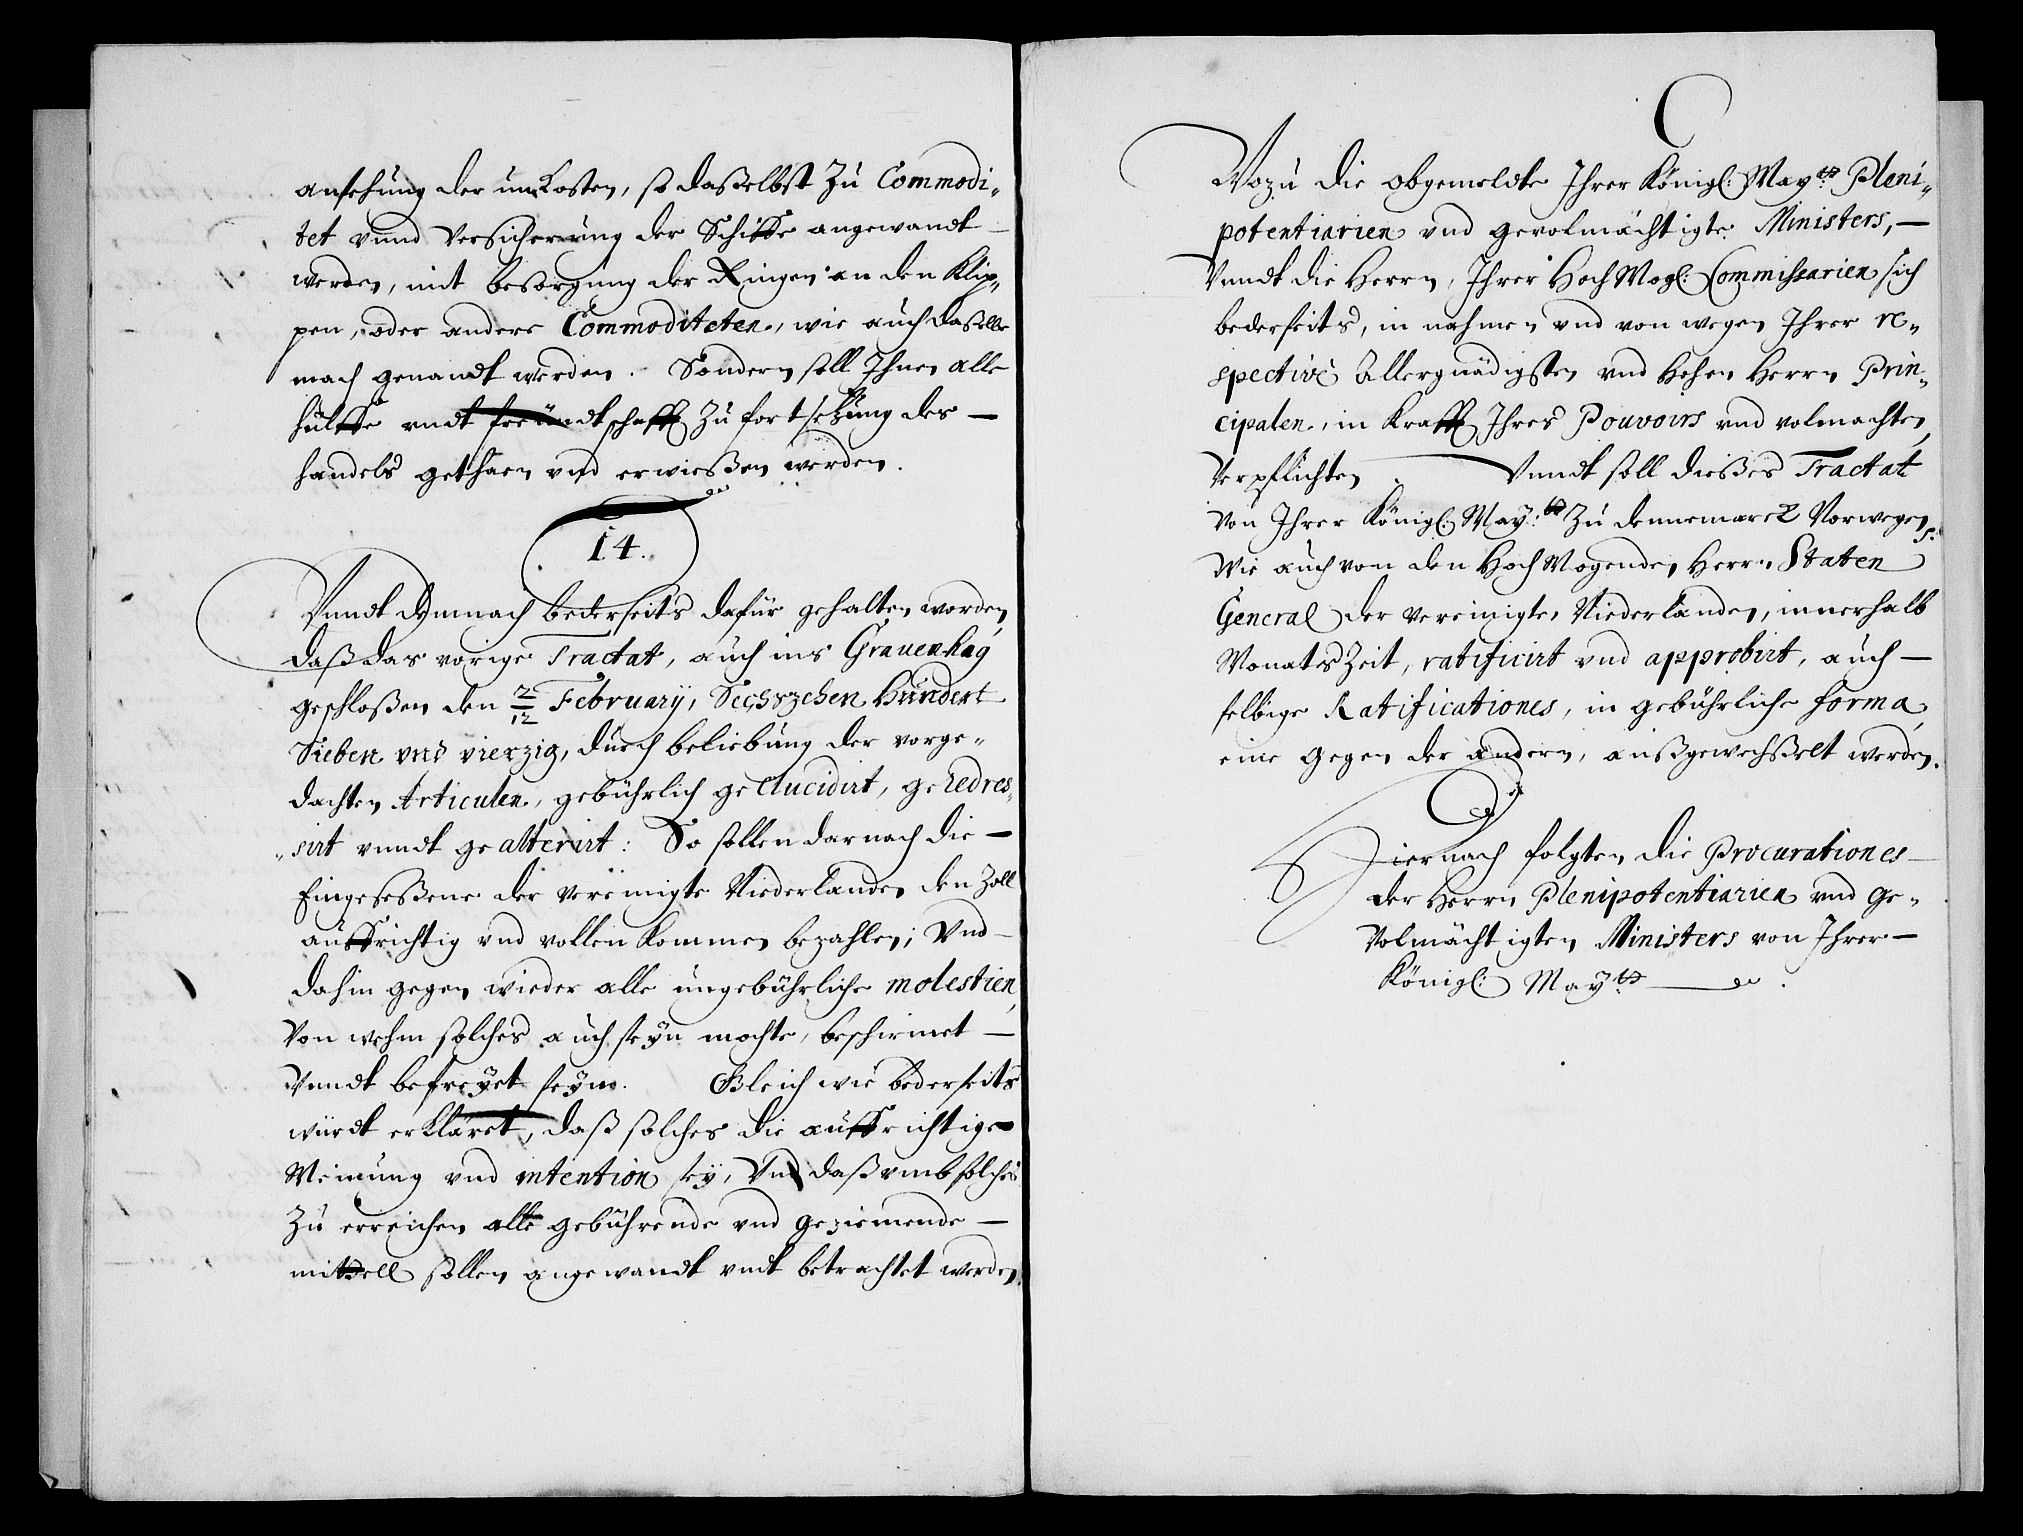 ansehung der unkosten, so daßelbst Zu Commodi-
tet vnnd Versicherung der Schiffe angewandt
werden, mit besorgung der Ringen an den Klip-
pen, oder andere Commoditeten, wie auch daßelbe
mach genandt werden. Sondern soll Ihnen alle
hülffe vndt freündtschafft Zu fortsetzung des
handels gethaen vnd erwießen werden.
14.
Vnndt demnach bederseits dafür gehalten worden,
daß das vorige Tractat, auch ins Grauenhag
geschloßen den 2/12 February, Sechszehen Hundert
Sieben vnd vierzig, durch beliebung der vorge-
dachten Articulen, gebührlich geelucidirt, geredres-
sirt vnndt gealterirt: So sollen darnach die
Eingeseßene der vereinigte Niederlanden den Zoll
auffrichtig vnd vollenkommen bezahlen; Vnd
dahin gegen wieder alle ungebührliche molestien,
Von wehm solches auch seyn mochte, beschirmet
Vnndt befreyet seyn. Gleich wie bederseits
würdt erkläret, daß solches die auffrichtige
Meinung vnd intention sey, Vnd daß vmb solches
Zu erreichen alle gebührende vnd geziemende
mittell sollen angewandt vndt betrachtet werden.
Wozu die obgemeldte Ihrer Königl: Mayts Pleni-
potentiarien vnd gevolmächtigte Ministers,
Vnndt die Herrn, Ihrer Hoch Mog: Commissarien sich
bederseits, in nahmen vnd von wegen Ihrer re-
spective Allergnädigsten vnd Hohen Herrn Prin-
cipalen, in Krafft Ihres Pouvoirs vnd volmachten,
Verpflichten. Vnndt soll dießes Tractat
von Ihrer Königl: May:ts Zu Dennemarck Norwegen ꝛ.
Wie auch von den Hoch Mogenden Herrn Staten
General der vereinigte Niederlanden, innerhalb
Monats Zeit, ratificirt vnd approbirt, auch
selbige Ratificationes, in gebührliche forma,
eine gegen der andern, außgewechßelt werden.
Hiernach folgten die Procurationes
der Herrn Plenipotentiarien vnd Ge-
Volmächtigten Ministers von Ihrer
Königl: Mayts.